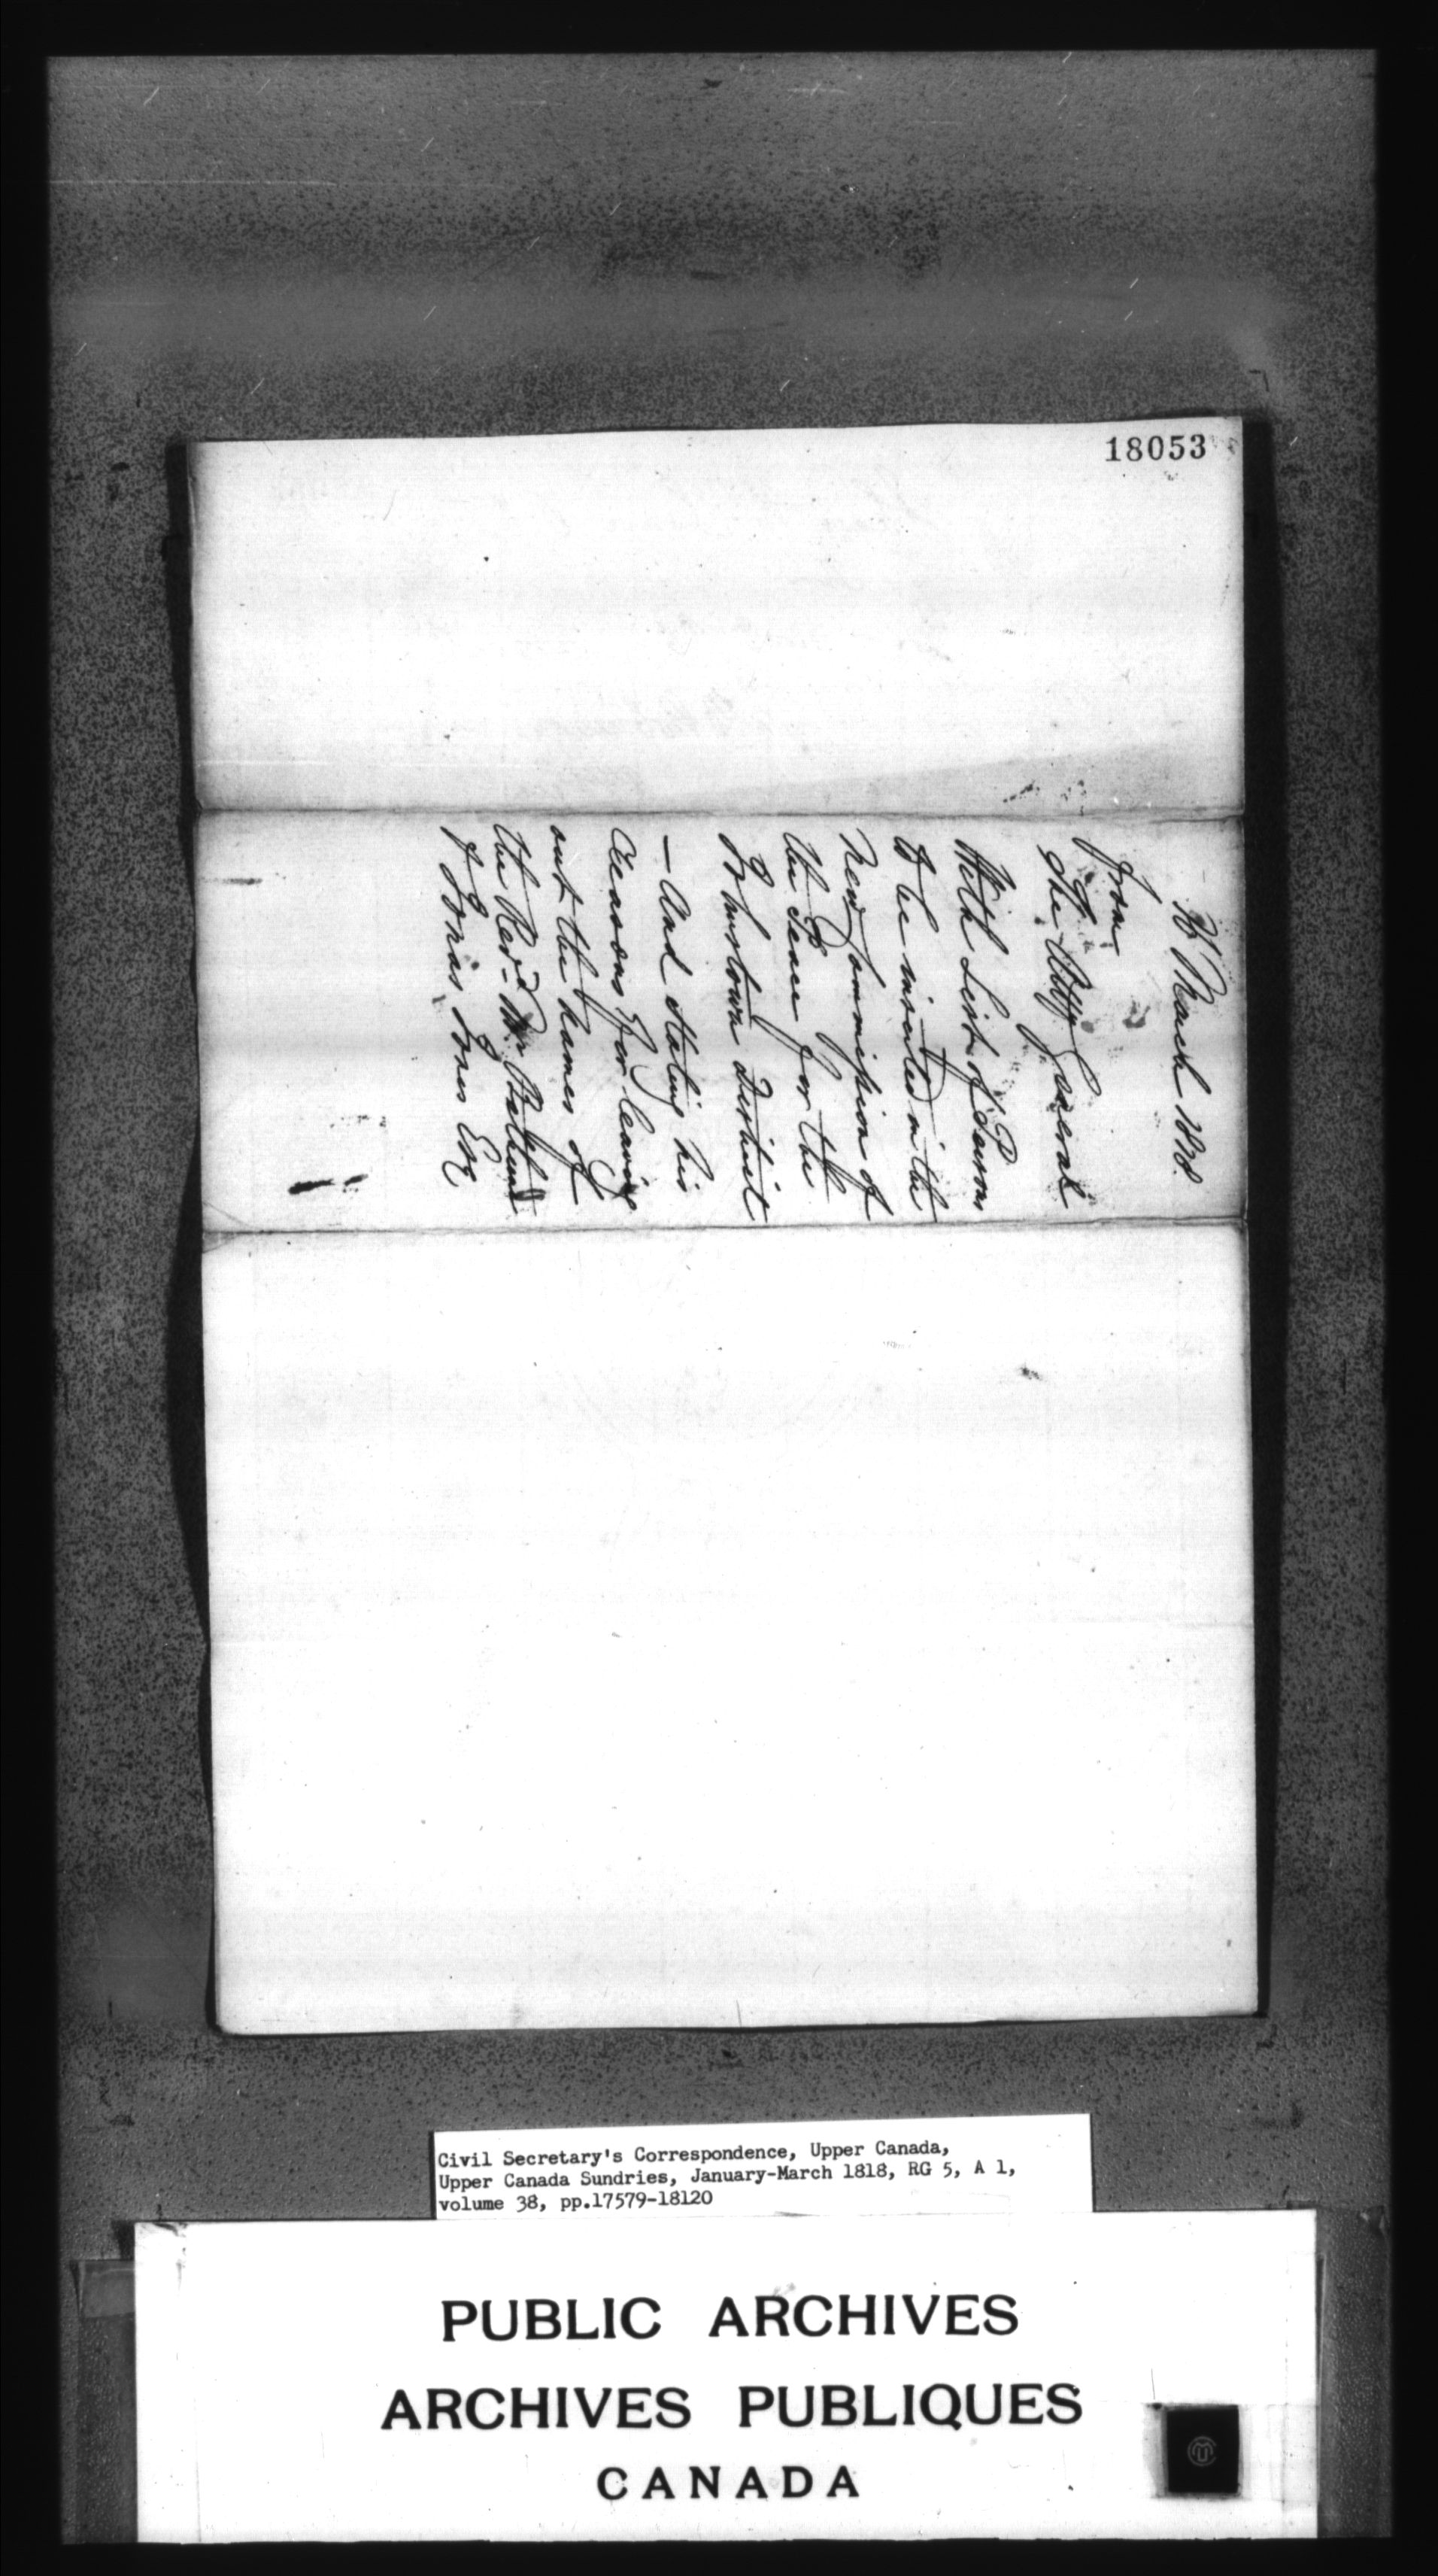 18053
March 1818.
From
The Atty General
With List of Persons
to be inserted in the
New Commission of
the Peace for the
Johnstown District
— And stating his
reasons for leaving
out the names of
the Revd. Mr Bethune
& Jonas Jones Esq
Civil Secretary's Correspondence, Upper Canada,
Upper Canada Sundries, January-March 1818, RG 5, A 1,
volume 38, pp.17579-18120
PUBLIC ARCHIVES
ARCHIVES PUBLIQUES
CANADA